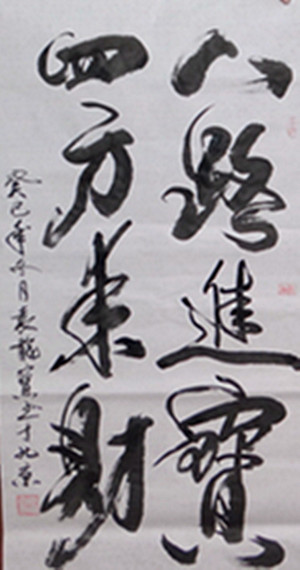 八路進寶
四方来財
癸巳年冬月袁龍窯书于北京